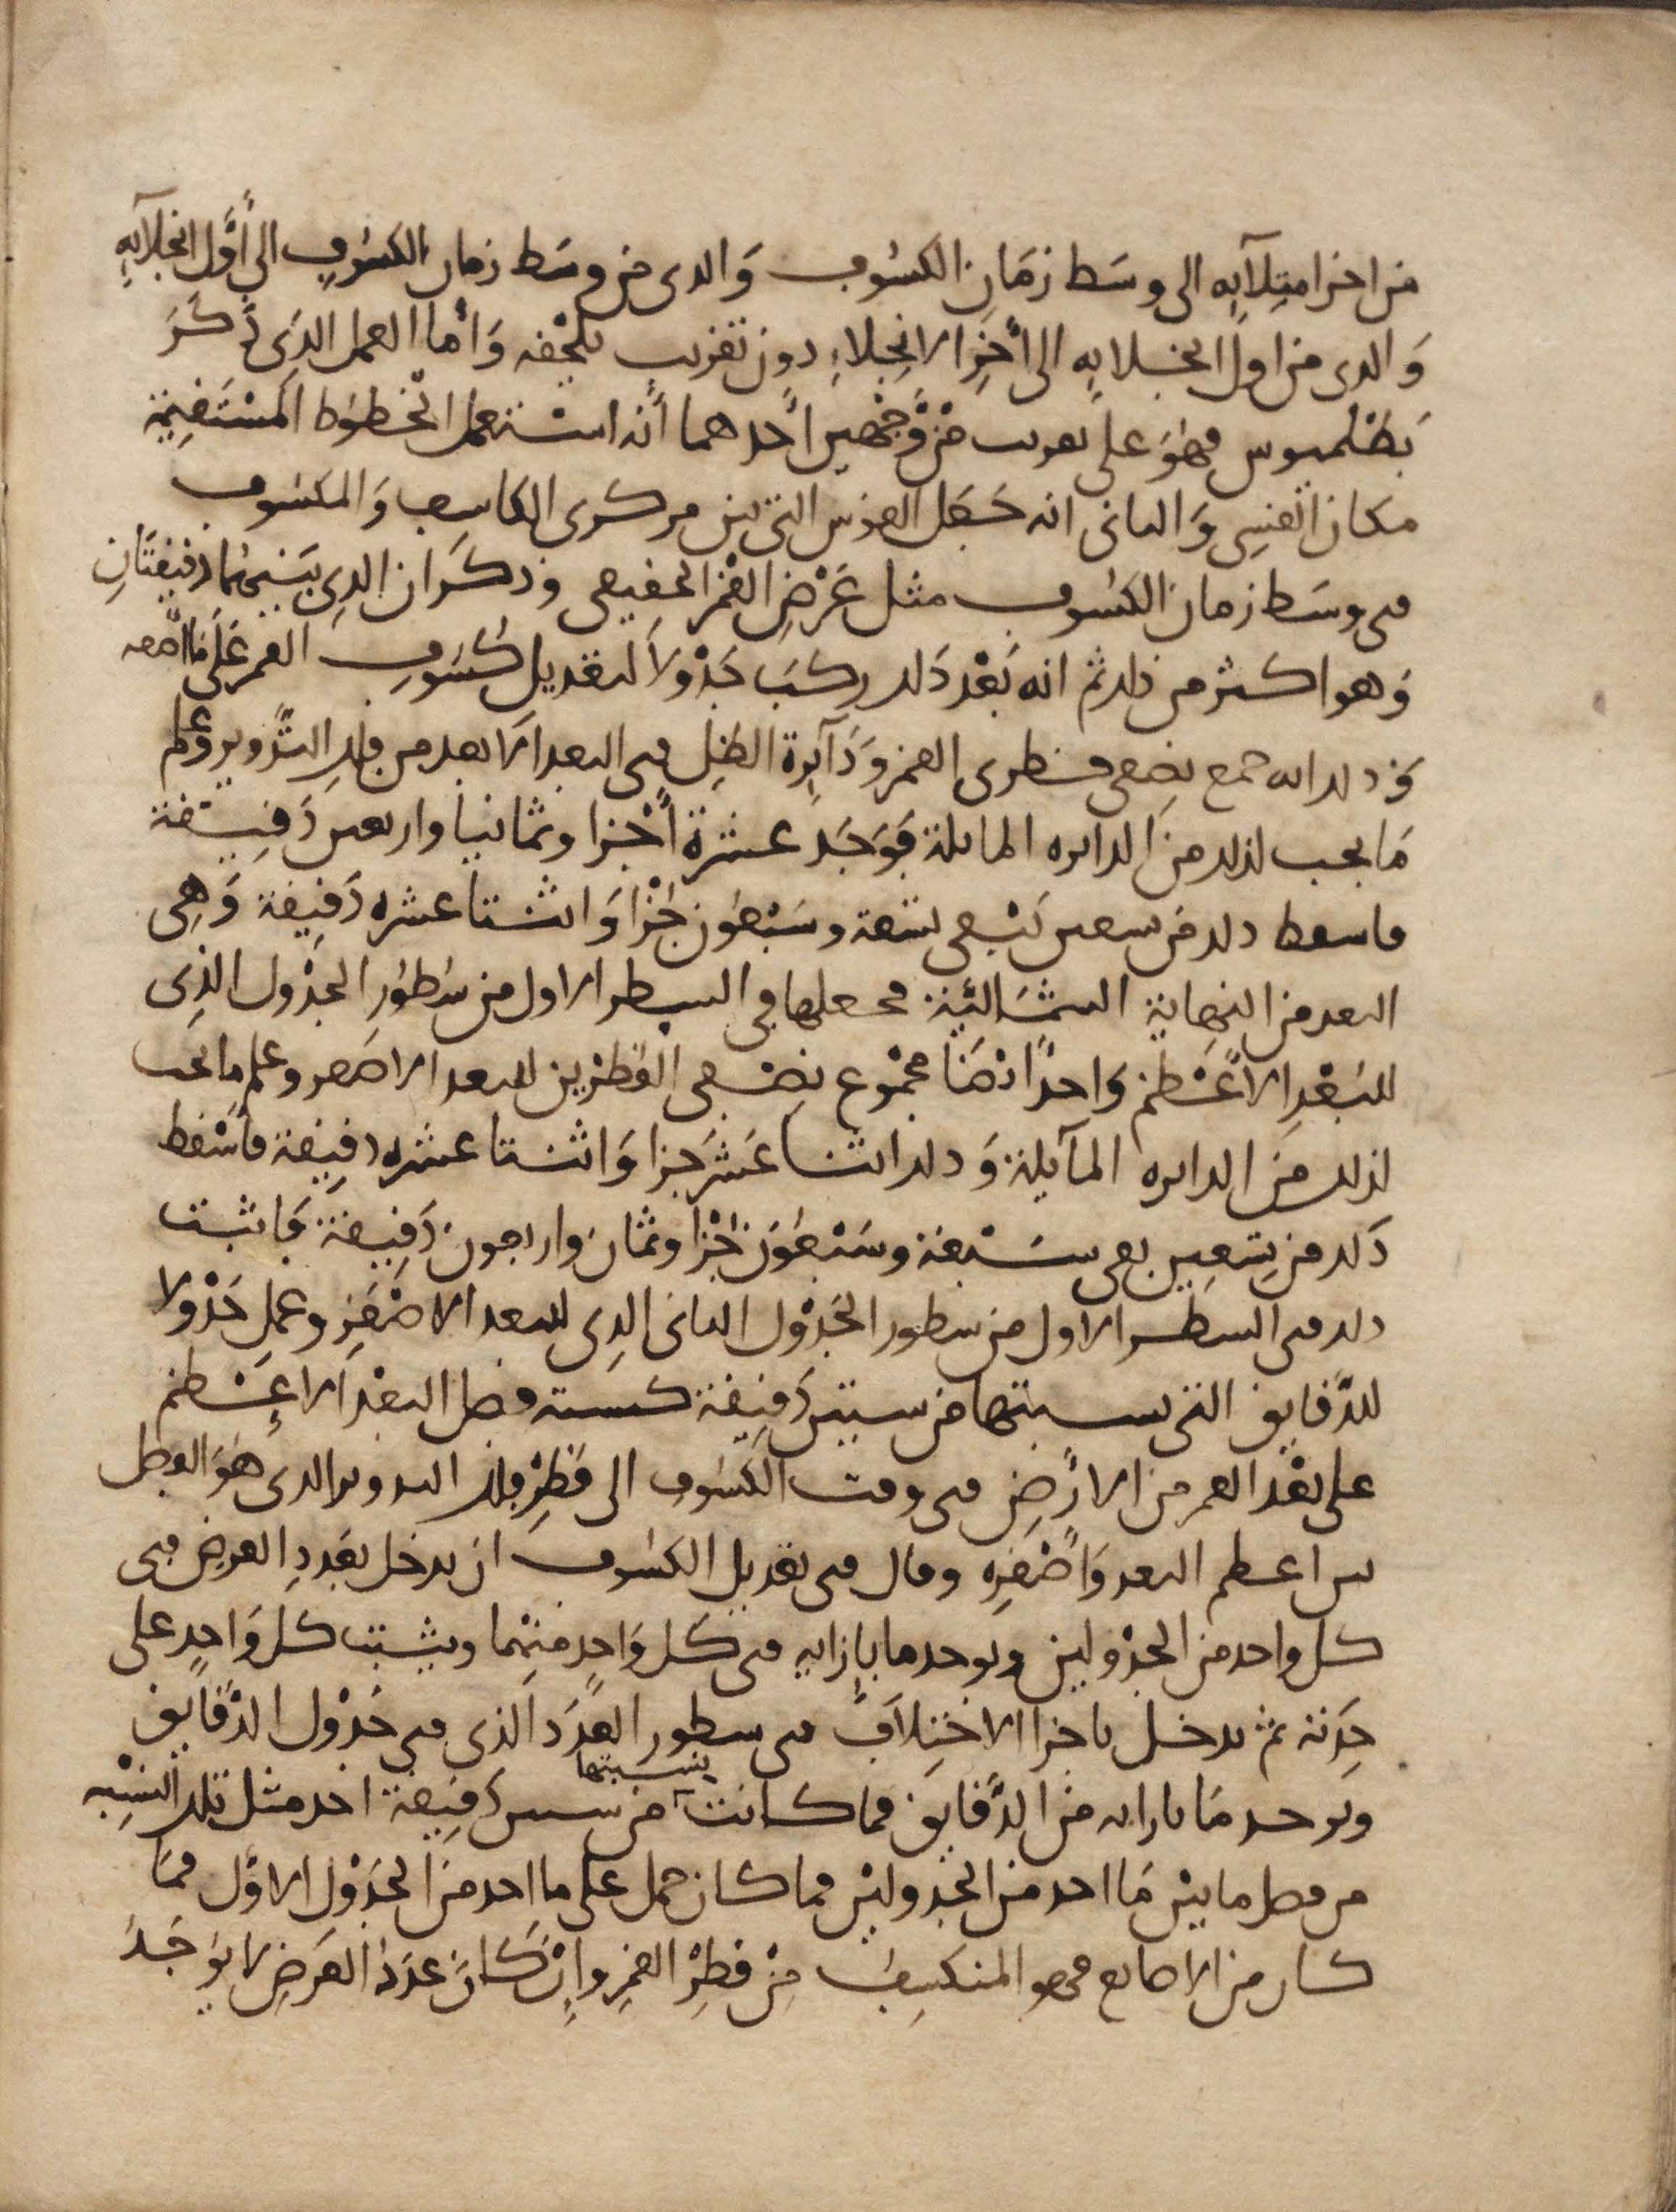 من اخر امتلآيه الى وسط زمان الكسوف والذى من وسط زمان الكسوف الى أول انجلآيه
والذى من اول انجلايه الى أخر الانجلاء دون تقريب يلحقه وأما العمل الذى ذكر
بطلميوس فهو على تقريب من وجهين أحدهما أنه استعمل الخطوط المستقيمة
مكان القسى والثانى انه جعل القوس التى بين مركزى الكاسف والمكسوف
فى وسط زمان الكسوف مثل عرض القمر الحقيقى وذكر ان الذى بينهما دقيقتان
وهو اكثر من ذلك ثم انه بعد ذلك ركب جدولا لتقديل كسوف القمر على ما اصفه
وذلك انه جمع نصفى قطرى القمر ودآيرة الظل فى البعد الابعد من فلك التدوير وعلم
ما يجب لذلك من الدايره المايلة فوجد عشرة أجزا وثمانيا واربعين دقيقة
فاسقط ذلك من تسعين تبقى تسعة وسبعون جزا واثنتا عشره دقيقة وهى
البعد من النهاية الشمالية فجعلها فى السطر الاول من سطور الجدول الذى
للبعد الأعظم واخذ ايضا مجموع نصفى القطرين للبعد الاصغر وعلم ما يجب
لذلك من الدايره المآيلة وذلك اثنا عشر جزا واثنتا عشره دقيقة فاسقط
ذلك من تسعين بقى سبعة وسبعون جزا وثمان واربعون دقيقة فاثبت
ذلك فى السطر الاول من سطور الجدول الثانى الذى للبعد الاصغر وعمل جدولا
للدقايق التى نسبتها من ستين دقيقة كنسبة فضل البعد الاعظم
على بعد القمر من الارض فى وقت الكسوف الى قطر فلك التدوير الذى هو الفضل
بين اعظم البعد واصغره وقال فى تقديل الكسوف ان يدخل بعدد العرض فى
كل واحد من الجدولين ويوخذ ما بإزايه فى كل واحد منهما ويثبت كل واحد على
حدته ثم يدخل باجزا الاختلاف فى سطور العدد الذى فى جدول الدقايق
ويوخذ ما بازايه من الدقايق فما كانت نسبتها من ستين دقيقة اخذ مثل تلك النسبه
من فضل ما بين ما اخذ من الجدولين فما كان حمل على ما اخذ من الجدول الاول فما
كان من الاصابع فهو المنكسف من قطر القمر وإن كان عدد العرض لا يوجد